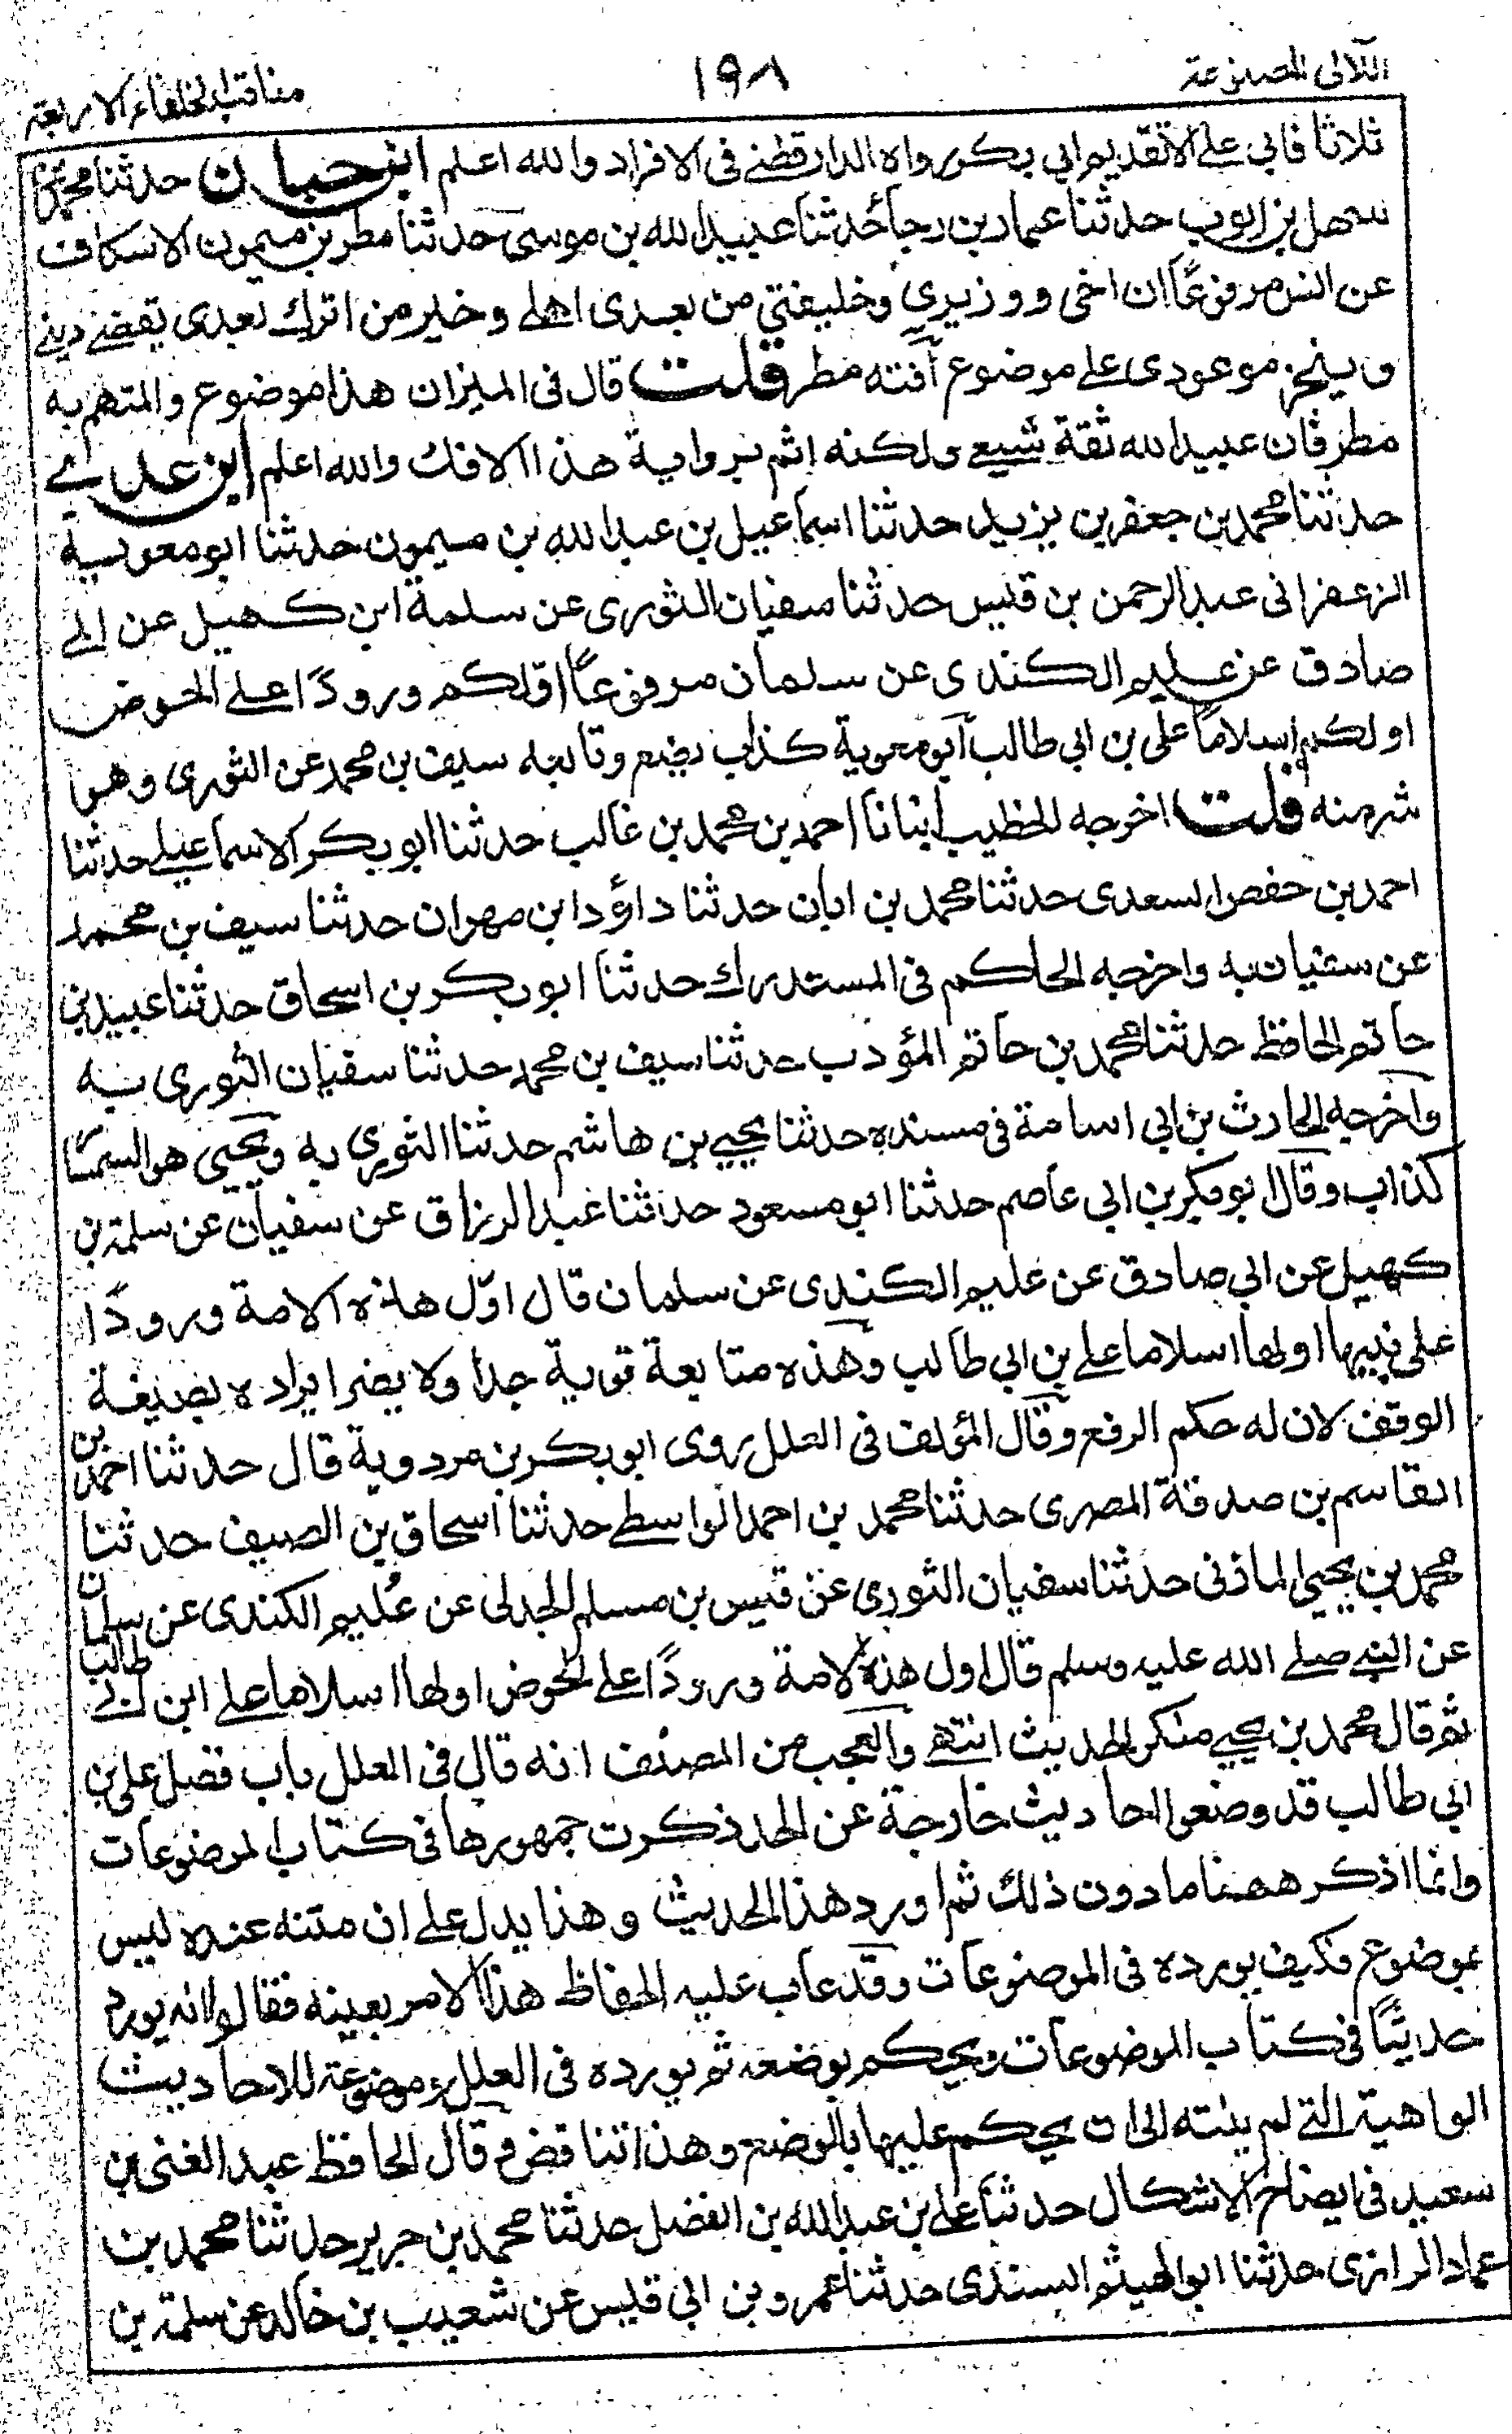 اللآلى المصنوعة
١٩٨
مناقب الخلفاء الاربعة
ثلاثا فابى على الا تقديم ابى بكر رواه الدارقطنے فى الافراد والله اعلم ابن حبان حدثنا محمد بن
سهل بن ايوب حدثنا عمار بن رجاء حدثنا عبيد الله بن موسى حدثنا مطر بن ميمون الاسكاف
عن انس مرفوعًا ان اخى ووزيرى وخليفتى من بعدى اهلے وخير من اترك بعدى يقضے دينے
وينجز موعودى علے موضوع آفته مطر قلت قال فى الميزان هذا موضوع والمتهم به
مطر فان عبيد الله ثقة شيعے ولكنه اثم برواية هذا الافك والله اعلم ابن عدے
حدثنا محمد بن جعفر بن يزيد حدثنا اسماعيل بن عبد الله بن ميمون حدثنا ابو معوية
الزعفرانى عبد الرحمن بن قيس حدثنا سفيان الثورى عن سلمة ابن كهيل عن ابے
صادق عن عليم الكندى عن سلمان مرفوعًا اولكم ورودًا علے الحوض
اولكم اسلامًا على بن ابى طالب ابو معوية كذاب يضع وتابعه سيف بن محمد عن الثورى وهو
شر منه قلت اخرجه الخطيب انبانا احمد بن محمد بن غالب حدثنا ابو بكر الاسماعيلے حدثنا
احمد بن حفص السعدى حدثنا محمد بن ابان حدثنا داؤد ابن مهران حدثنا سيف بن محمد
عن سفيان به واخرجه الحاكم فى المستدرك حدثنا ابو بكر بن اسحاق حدثنا عبيد بن
حاتم الحافظ حدثنا محمد بن حاتم المؤدب حدثنا سيف بن محمد حدثنا سفيان الثورى به
واخرجه الحارث بن ابى اسامة فى مسنده حدثنا يحيے بن هاشم حدثنا الثورى به ويحيى هو السمسار
كذاب وقال ابو بكر بن ابى عاصم حدثنا ابو مسعود حدثنا عبد الرزاق عن سفيان عن سلمة بن
كهيل عن ابى صادق عن عليم الكندى عن سلمان قال اوّل هذه الامة ورودًا
على نبيها اولها اسلاما علے بن ابى طالب وهذه متابعة قوية جدا ولا يضر ايراده بصيغة
الوقف لان له حكم الرفع وقال المؤلف فى العلل روى ابو بكر بن مردوية قال حدثنا احمد بن
القاسم بن صدقة المصرى حدثنا محمد بن احمد الواسطے حدثنا اسحاق بن الصيف حدثنا
محمد بن يحيى الماذنى حدثنا سفيان الثورى عن قيس بن مسلم الجدلى عن عُليم الكندى عن سلمان
عن النبے صلے الله عليه وسلم قال اول هذه الامة ورودًا علے الحوض اولها اسلاما علے ابن ابے طالب
ثم قال محمد بن يحيے منكر الحديث انتهے والعجب من المصنف انه قال فى العلل باب فضل على بن
ابى طالب قد وضعوا احاديث خارجة عن الحد ذكرت جمهورها فى كتاب الموضوعات
وانما اذكر ههنا ما دون ذلك ثم اورد هذا الحديث وهذا يدل علے ان متنه عنده ليس
بموضوع فكيف يورده فى الموضوعات وقد عاب عليه الحفاظ هذا الامر بعينه فقالوا انه يورد
حديثًا فى كتاب الموضوعات ويحكم بوضعه ثم يورده فى العلل وموضوعة للاحاديث
الواهية التے لم ينته الى ان يحكم عليها بالوضع وهذا تناقض وقال الحافظ عبد الغنى بن
سعيد فى ايضاح الاشكال حدثنا علے بن عبد الله بن الفضل حدثنا محمد بن جرير حدثنا محمد بن
عماد الرازى حدثنا ابو الهيثم السندى حدثنا عمرو بن ابى قيس عن شعيب بن خالد عن سلمة بن